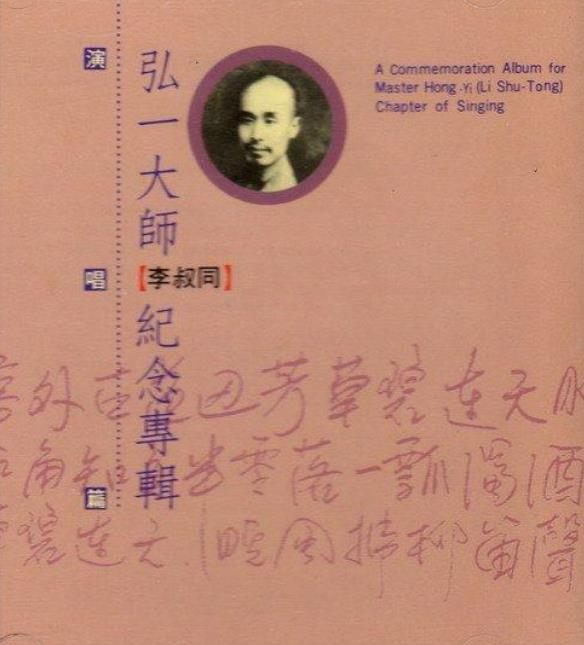 演唱篇
弘一大師
【李叔同】
紀念專輯
A Commemoration Album for
Master Hong-Yi (Li Shu-Tong)
Chapter of Singing
外古道邊芳草碧連天
角知交半零落一瓢濁酒
碧連天 晚風拂柳笛聲